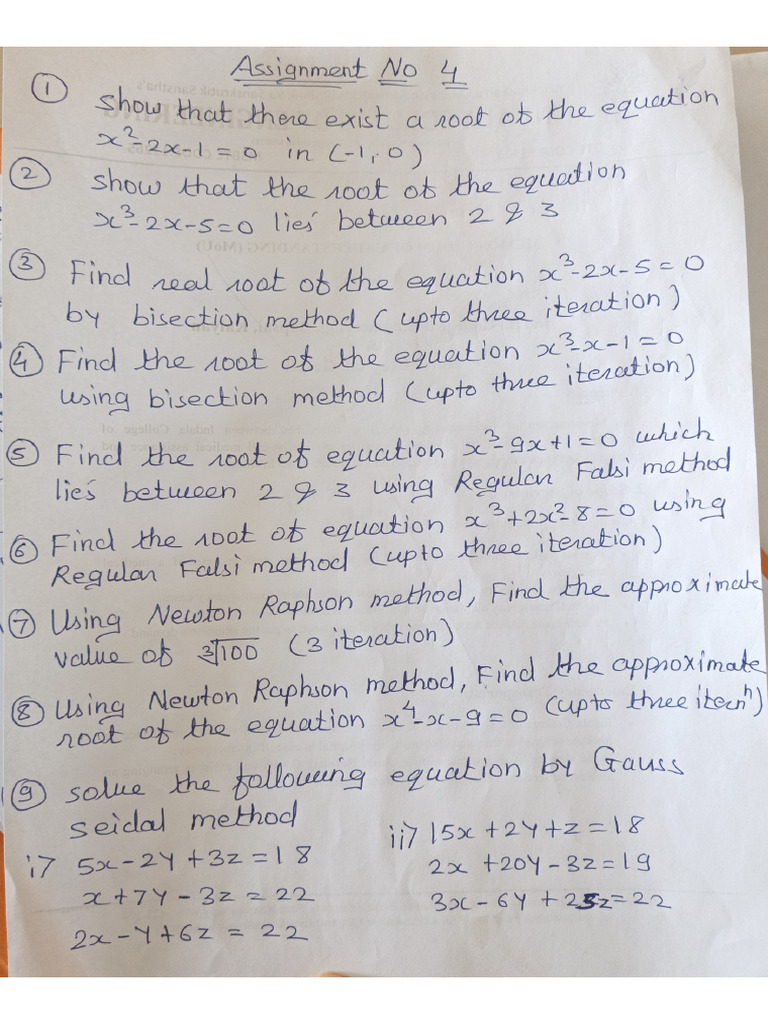 Assignment No 4
① Show that there exist a root of the equation
x²-2x-1=0 in (-1,0)
② Show that the root of the equation
x³-2x-5=0 lies between 2 & 3
③ Find real root of the equation x³-2x-5=0
by bisection method (upto three iteration)
④ Find the root of the equation x³-x-1=0
using bisection method (upto three iteration)
⑤ Find the root of equation x³-9x+1=0 which
lies between 2 & 3 using Regular Falsi method
⑥ Find the root of equation x³+2x²-8=0 using
Regular Falsi method (upto three iteration)
⑦ Using Newton Raphson method, Find the approximate
value of ∛100 (3 iteration)
⑧ Using Newton Raphson method, Find the approximate
root of the equation x⁴-x-9=0 (upto three iterⁿ)
⑨ solve the following equation by Gauss
seidal method
i> 5x-2y+3z=18
x+7y-3z=22
2x-y+6z=22
ii> 15x+2y+z=18
2x+20y-3z=19
3x-6y+25z=22